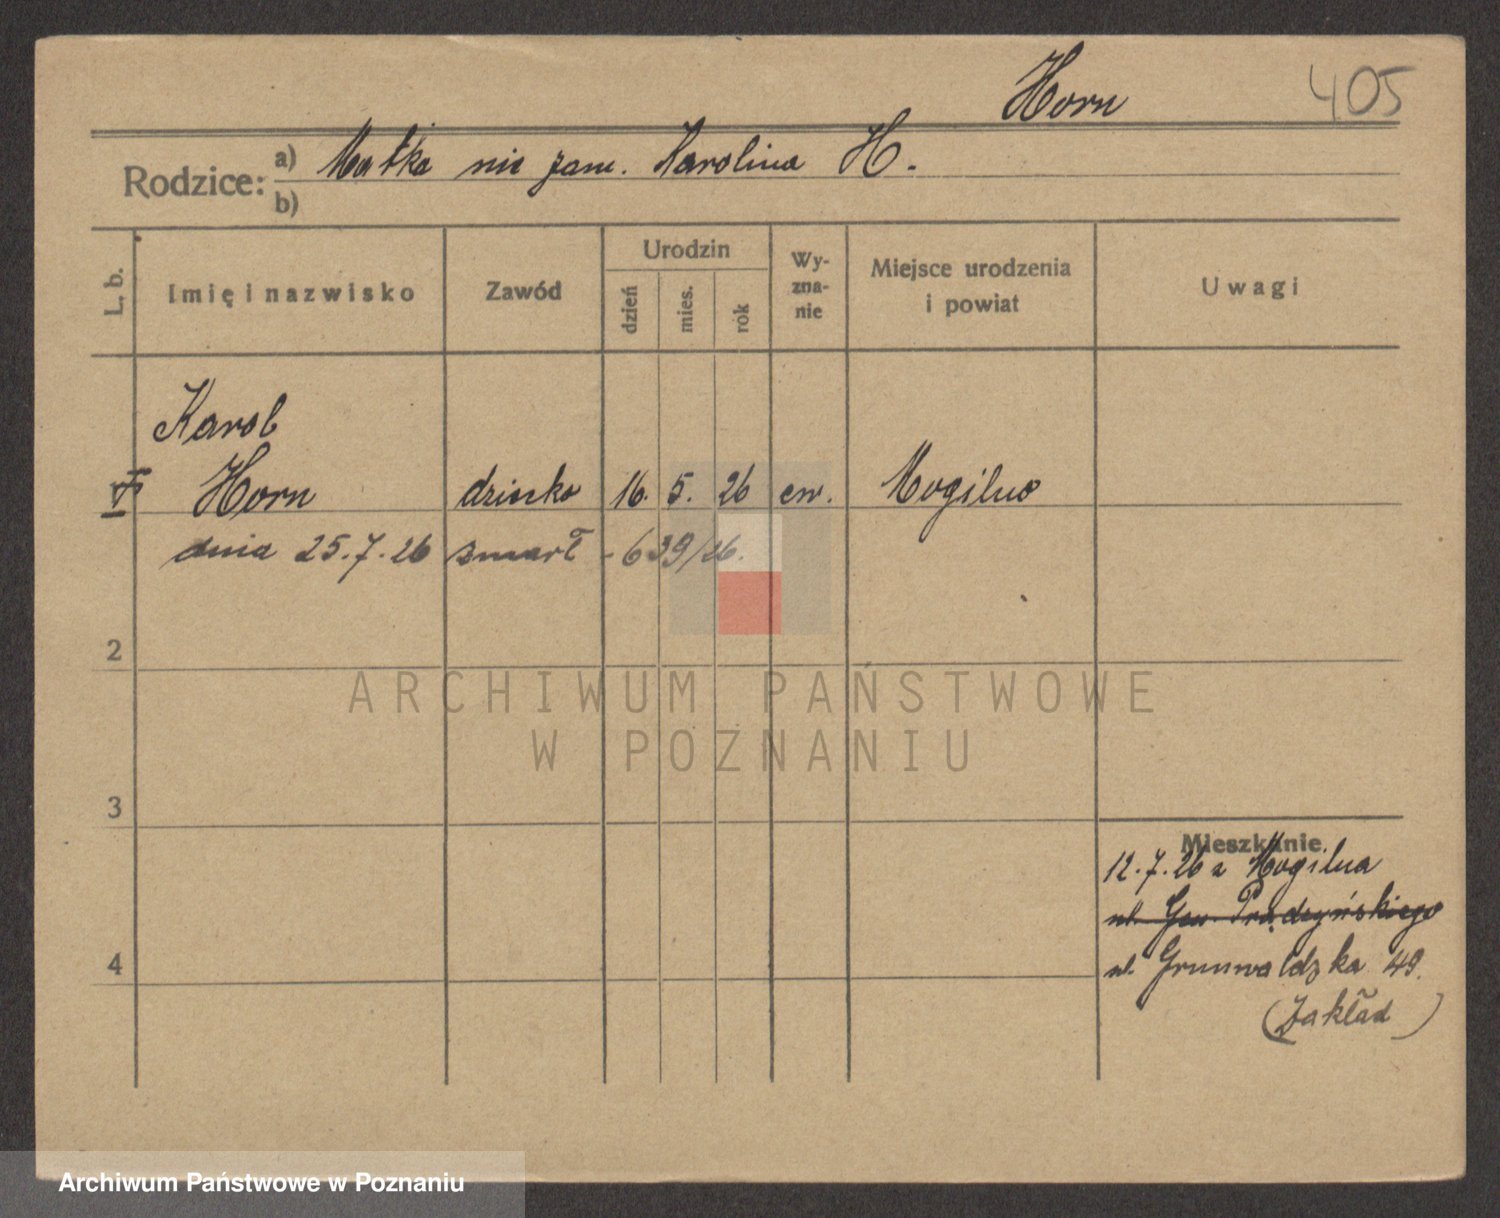 Horn 405
Rodzice: a) Matka nie zam. Karolina H.
b)
L. b. Imię i nazwisko Zawód Urodzin dzień mies. rok Wy-zna-nie Miejsce urodzenia i powiat Uwagi
Karol
Horn dziecko 16. 5. 26 ew. Mogilno
dnia 25.7.26 zmarł - 639/26.
2
ARCHIWUM PAŃSTWOWE
W POZNANIU
3
Mieszkanie
12.7.26 z Mogilna
ul. Gen. Prądzyńskiego
4
ul. Grunwaldzka 49.
(Zakład)
Archiwum Państwowe w Poznaniu